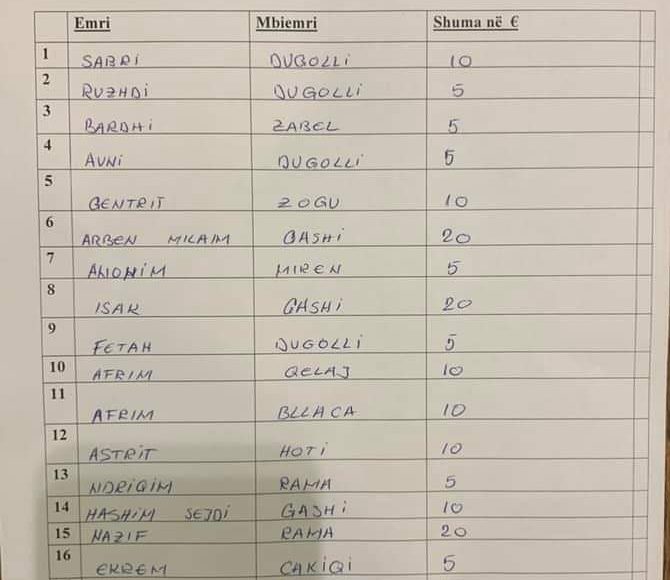 Emri Mbiemri Shuma në €
1 SABRI DUGOLLI 10
2 RUZHDI DUGOLLI 5
3 BARDHI ZABEL 5
4 AVNI DUGOLLI 5
5 GENTRIT ZOGU 10
6 ARBEN MILAIM GASHI 20
7 ANONIM MIREN 5
8 ISAK GASHI 20
9 FETAH DUGOLLI 5
10 AFRIM QELAJ 10
11 AFRIM BLLACA 10
12 ASTRIT HOTI 10
13 NDRIQIM RAMA 5
14 HASHIM SEJDI GASHI 10
15 NAZIF RAMA 20
16 EKREM CAKIQI 5